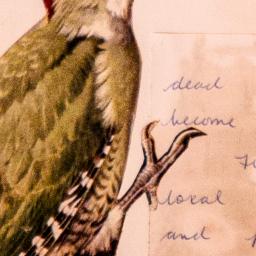 dead
become
local
and